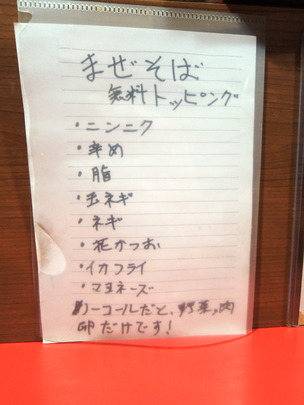 まぜそば
無料トッピング
・ニンニク
・辛め
・脂
・玉ネギ
・ネギ
・花かつお
・イカフライ
・マヨネーズ
ノーコールだと、野菜,肉
卵だけです!